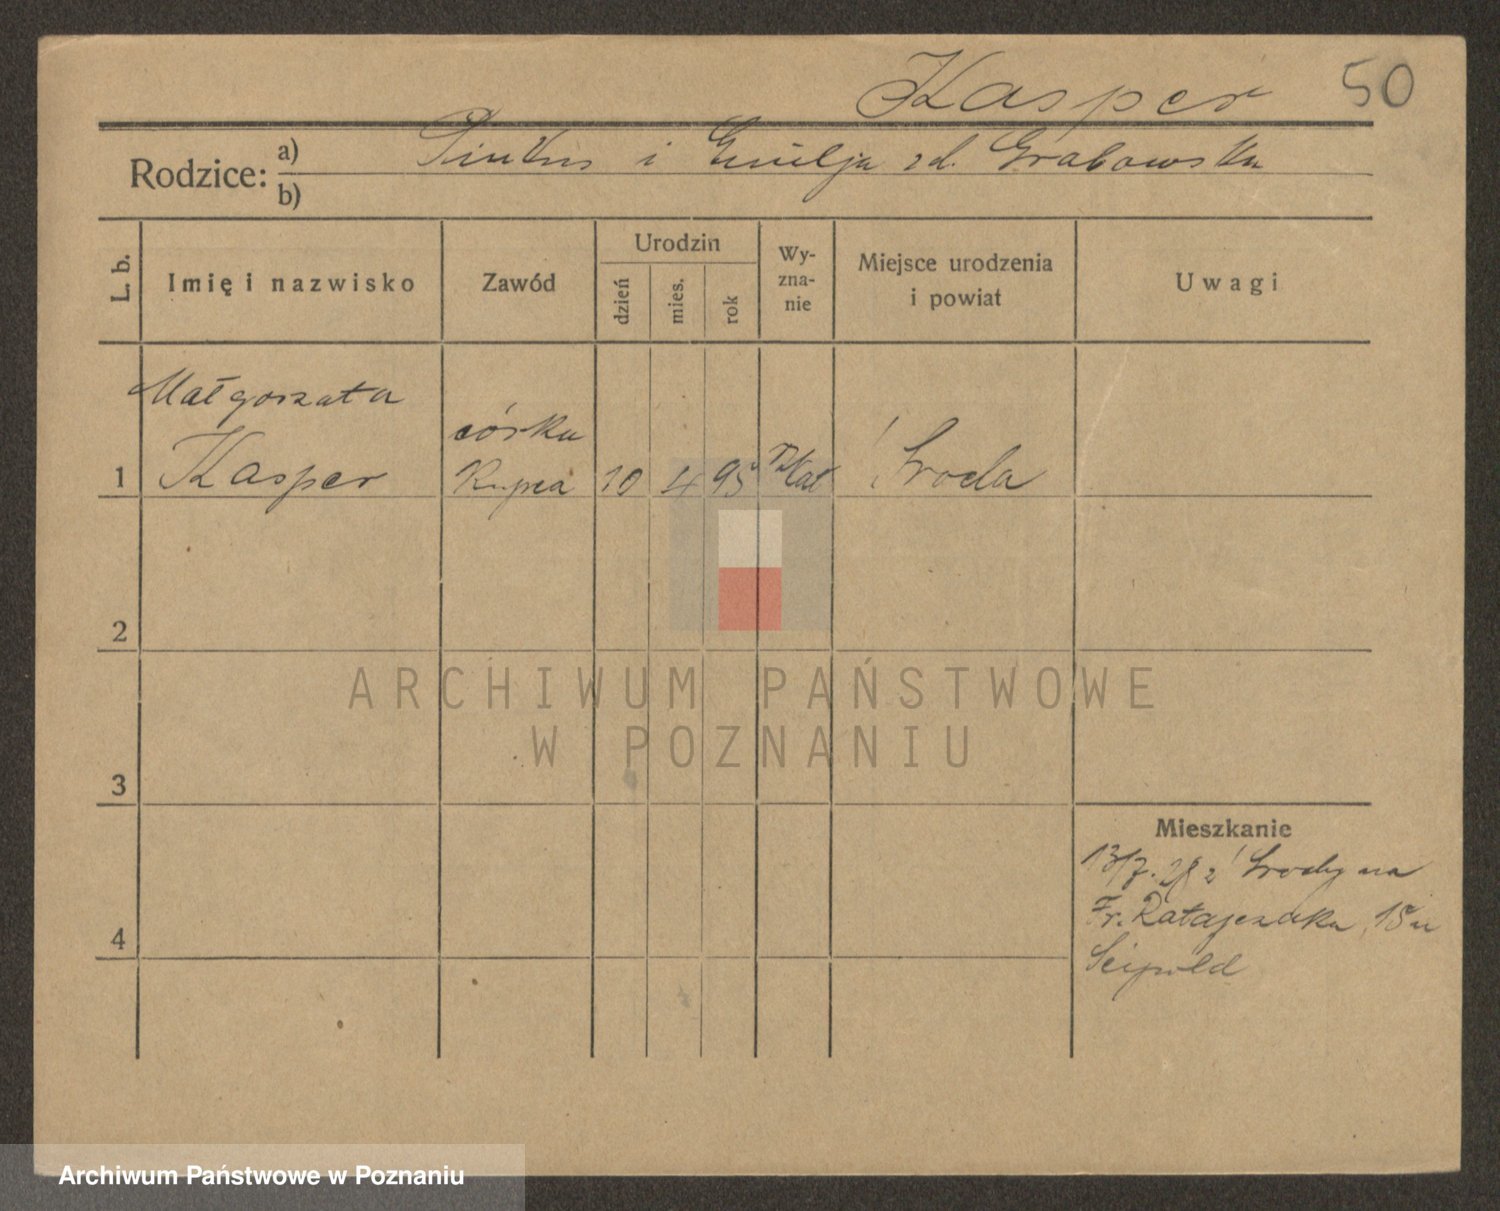 Kasper 50
Rodzice: a) Pinkus i Emilja zd. Grabowska
b)
L. b. Imię i nazwisko Zawód Urodzin dzień mies. rok Wy-zna-nie Miejsce urodzenia i powiat Uwagi
Małgorzata
córka
1 Kasper kupca 10 4 95 Środa
2
ARCHIWUM PAŃSTWOWE
W POZNANIU
3
Mieszkanie
13/7. 28 z Środy na
Fr. Ratajczaka 15 u
4
Seipold
Archiwum Państwowe w Poznaniu